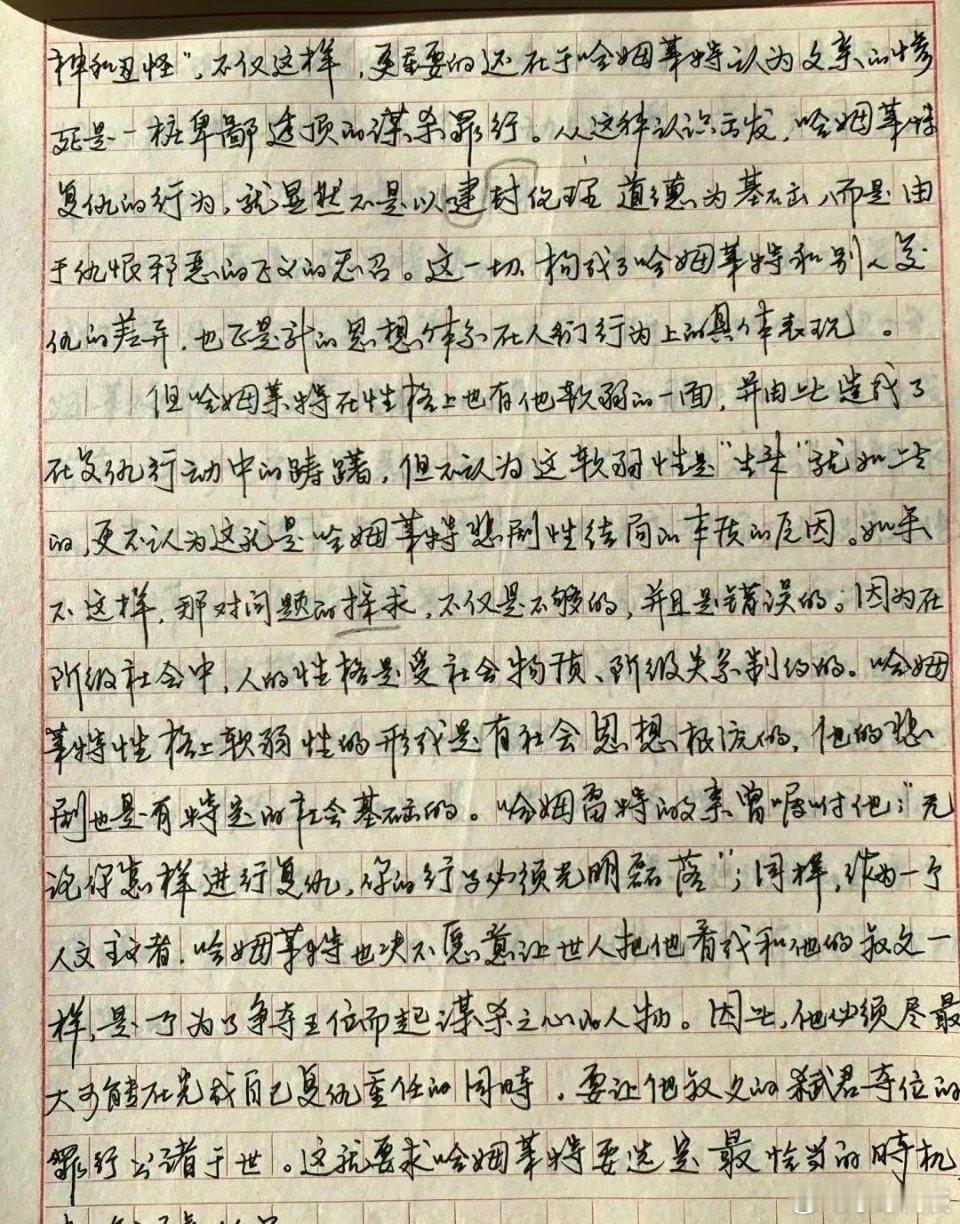 神和丑怪”,不仅这样,更重要的还在于哈姆莱特认为父亲的惨
死是一桩卑鄙透顶的谋杀罪行。从这种认识出发,哈姆莱特
复仇的行为,就显然不是以建封伦理道德为基础,而是由
于仇恨邪恶的正义的感召。这一切,构成了哈姆莱特和别人复
仇的差异,也正是新的思想体系在人们行为上的具体表现。
但哈姆莱特在性格上也有他软弱的一面,并由此造成了
在复仇行动中的踌躇,但不认为这软弱性是“生来”就如此
的,更不认为这就是哈姆莱特悲剧性结局的本质的原因。如果
不这样,那对问题的探求,不仅是不够的,并且是错误的;因为在
阶级社会中,人的性格是受社会物质、阶级关系制约的。哈姆
莱特性格上软弱性的形成是有社会思想根源的,他的悲
剧也是有特定的社会基础的。哈姆雷特的父亲曾嘱咐他:“无
论你怎样进行复仇,你的行为必须光明磊落”;同样,作为一个
人文主义者,哈姆莱特也决不愿意让世人把他看成和他的叔父一
样,是个为了争夺王位而起谋杀之心的人物。因此,他必须尽最
大可能在完成自己复仇重任的同时,要让他叔父的弑君夺位的
罪行公诸于世。这就要求哈姆莱特要选定最恰当的时机